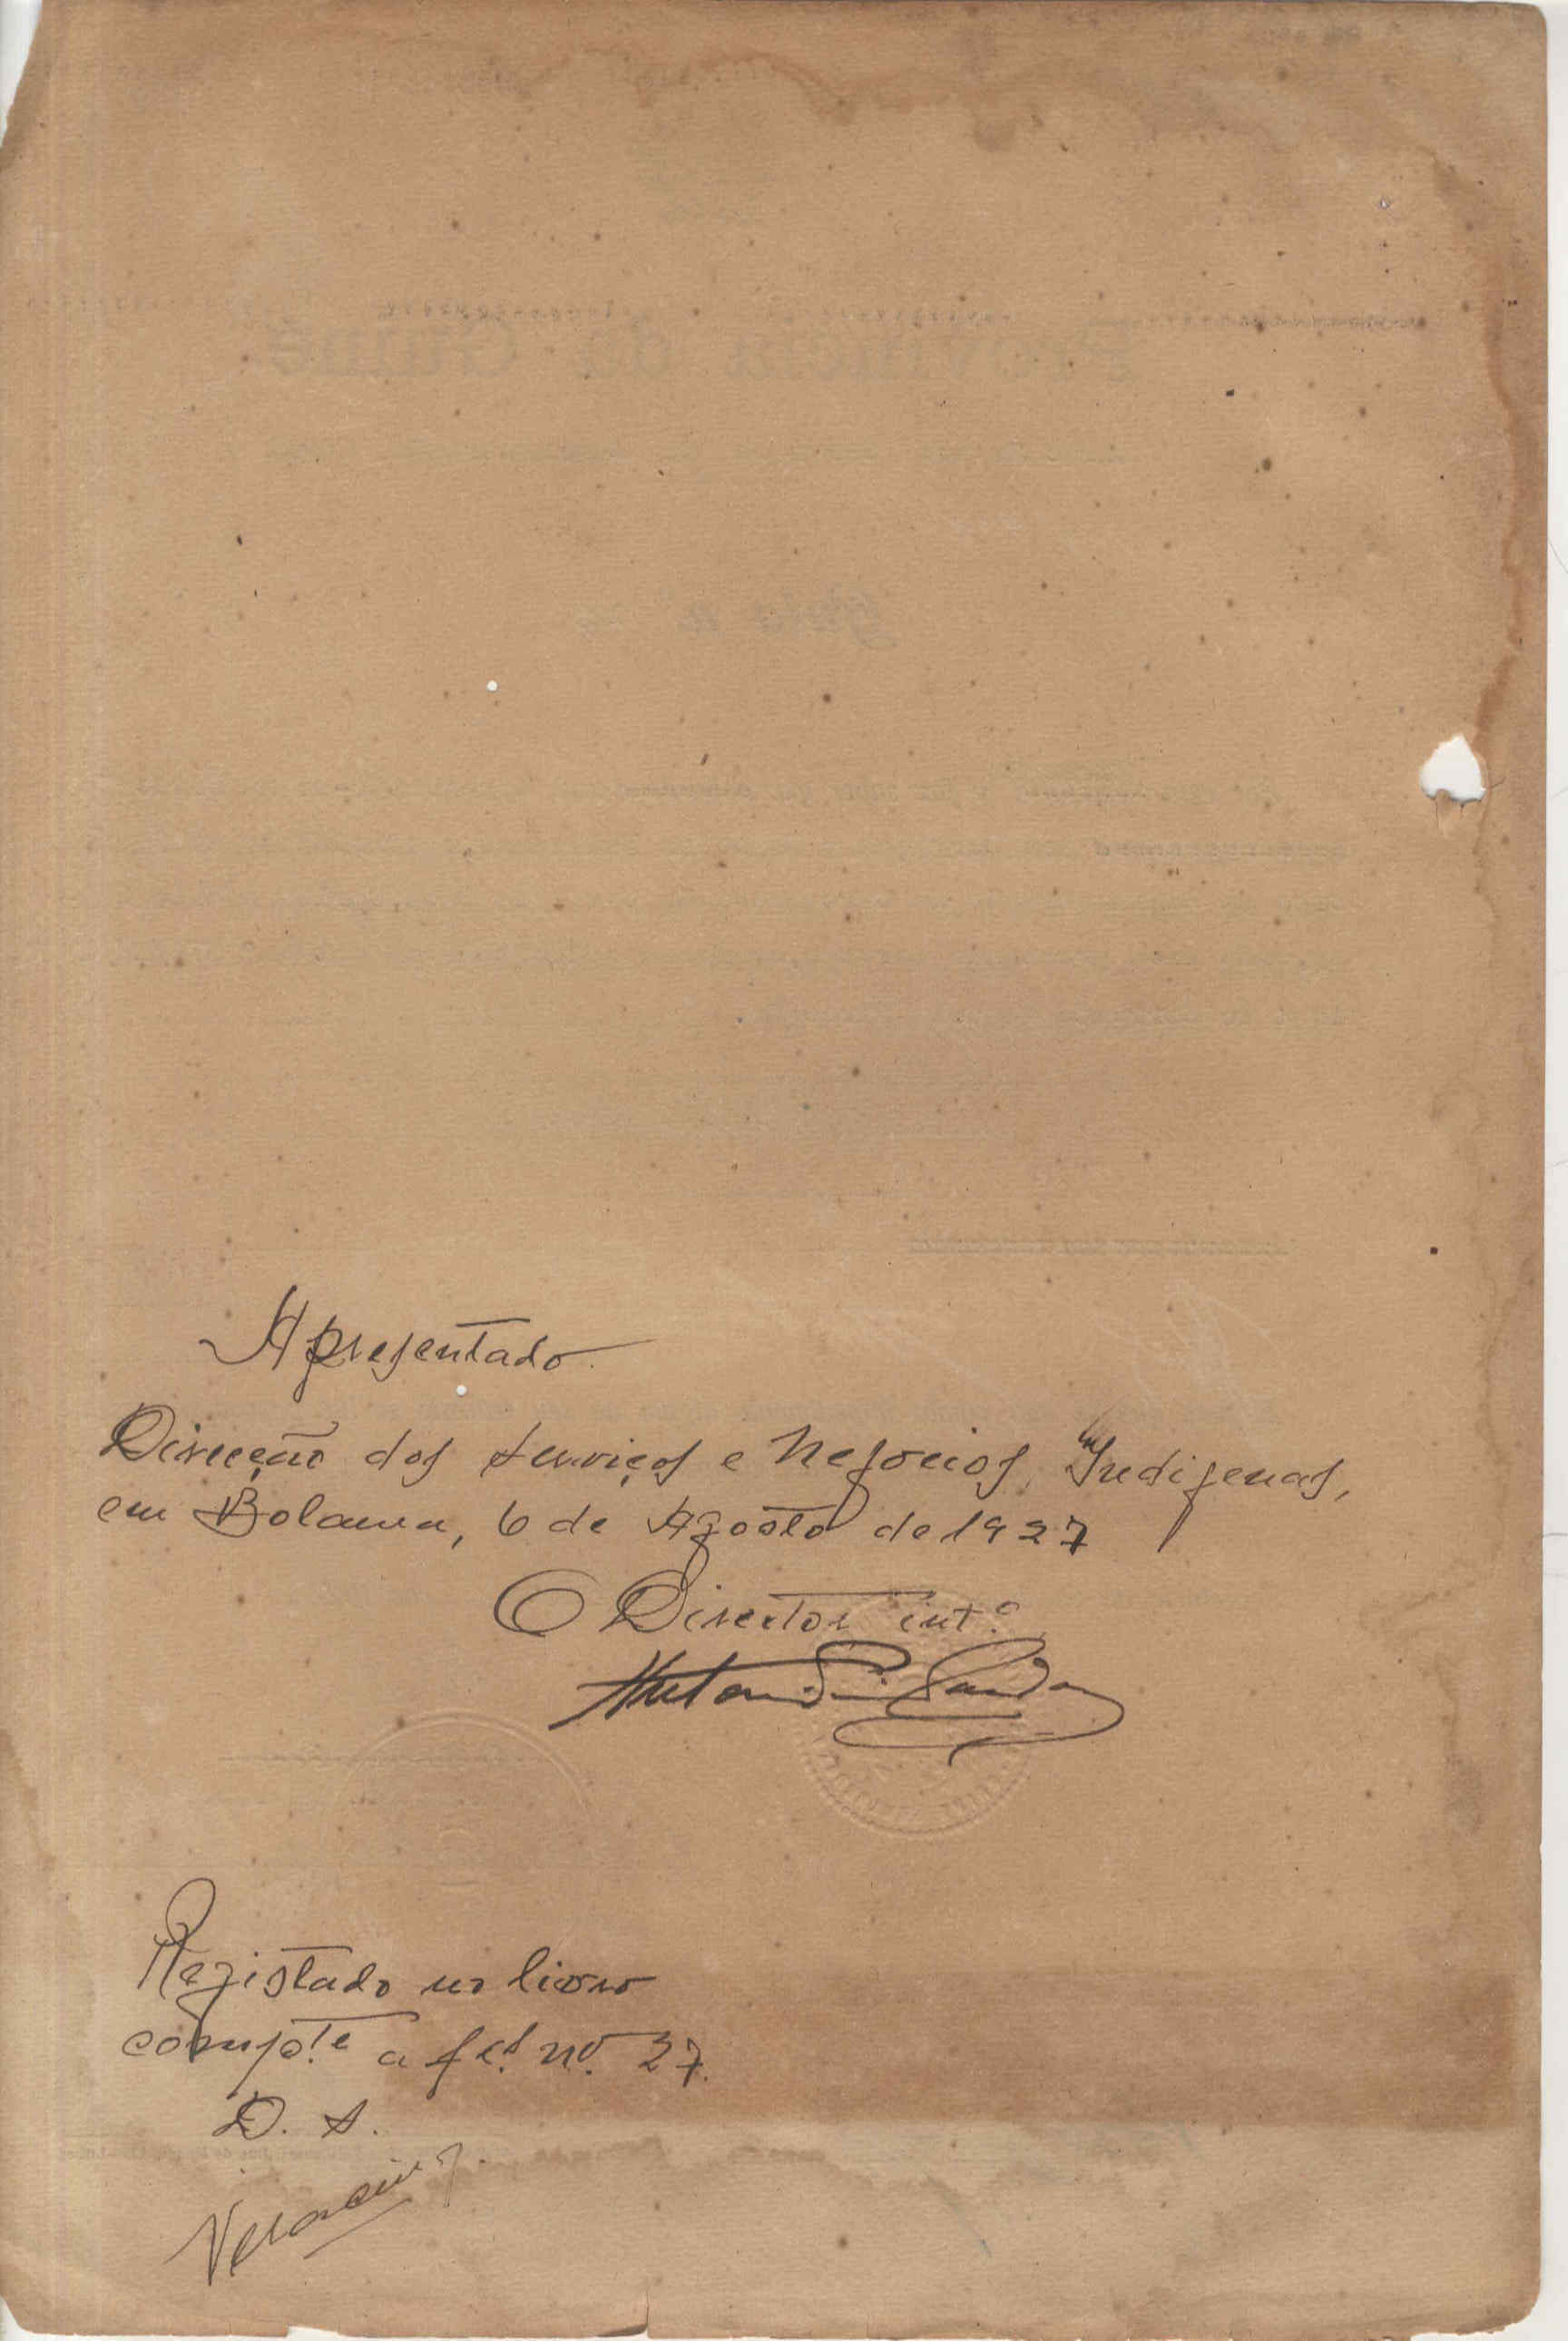 Apresentado
Direcção dos Serviços e Negocios Indigenas,
em Bolama, 6 de Agosto de 1927
O Director int.º
Registado no livro
comp.te a fls. nº. 27.
D. S.